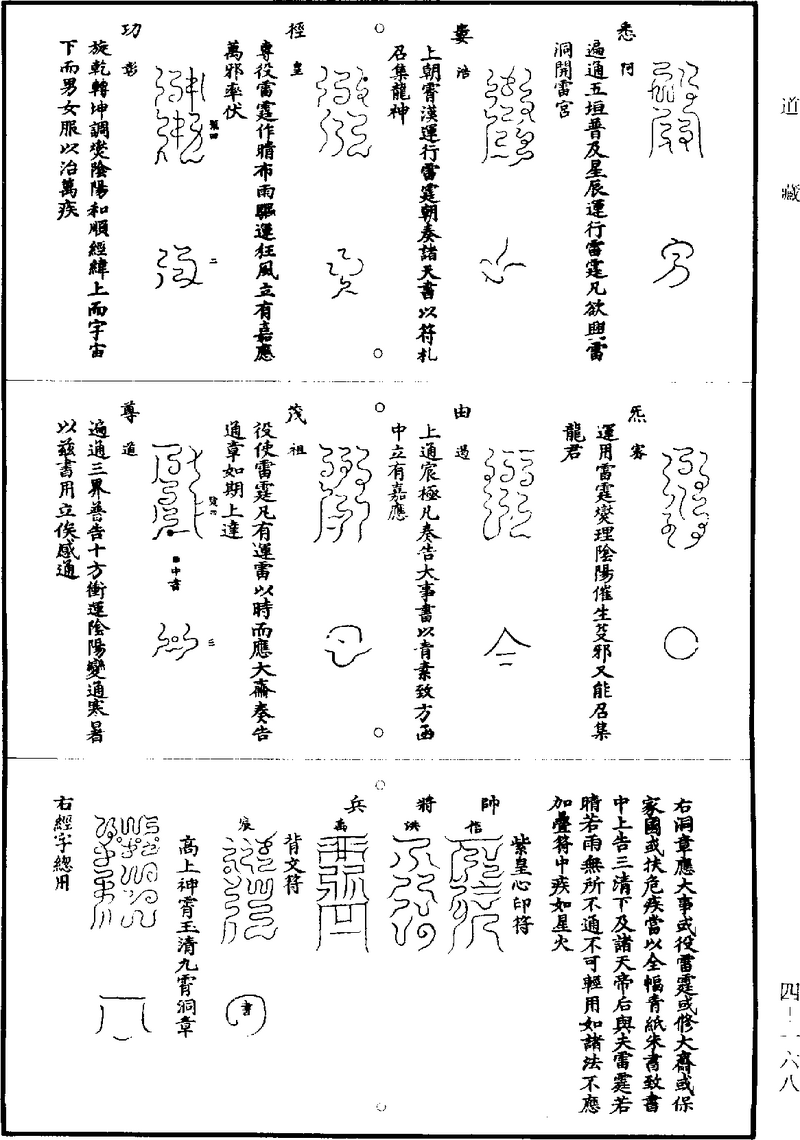 道藏
四-一六八
悉
阿
遍通五垣普及星辰運行雷霆凡欲興雷
洞開雷宮
婁
浩
上朝霄漢運行雷霆朝奏諸天書以符札
召集龍神
徑
皇
專役雷霆作晴布雨驅運狂風立有嘉應
萬邪率伏
功
彰
二
旋乾轉坤調燮陰陽和順經緯上而宇宙
下而男女服以治萬疾
炁
運用雷霆燮理陰陽催生芟邪又能召集
龍君
由
上通宸極凡奏告大事書以青素致方函
中立有嘉應
茂
祖
役使雷霆凡有運雷以時而應大齋奏告
通章如期上達
尊
道
三
遍通三界普告十方衝運陰陽變通寒暑
以茲書用立俟感通
右洞章應大事或役雷霆或修大齋或保
家國或扶危疾當以全幅青紙朱書致書
中上告三清下及諸天帝后與夫雷霆若
晴若雨無所不通不可輕用如諸法不應
加疊符中疾如星火
紫皇心印符
帥
將
洪
兵
背文符
高上神霄玉清九霄洞章
右經字總用